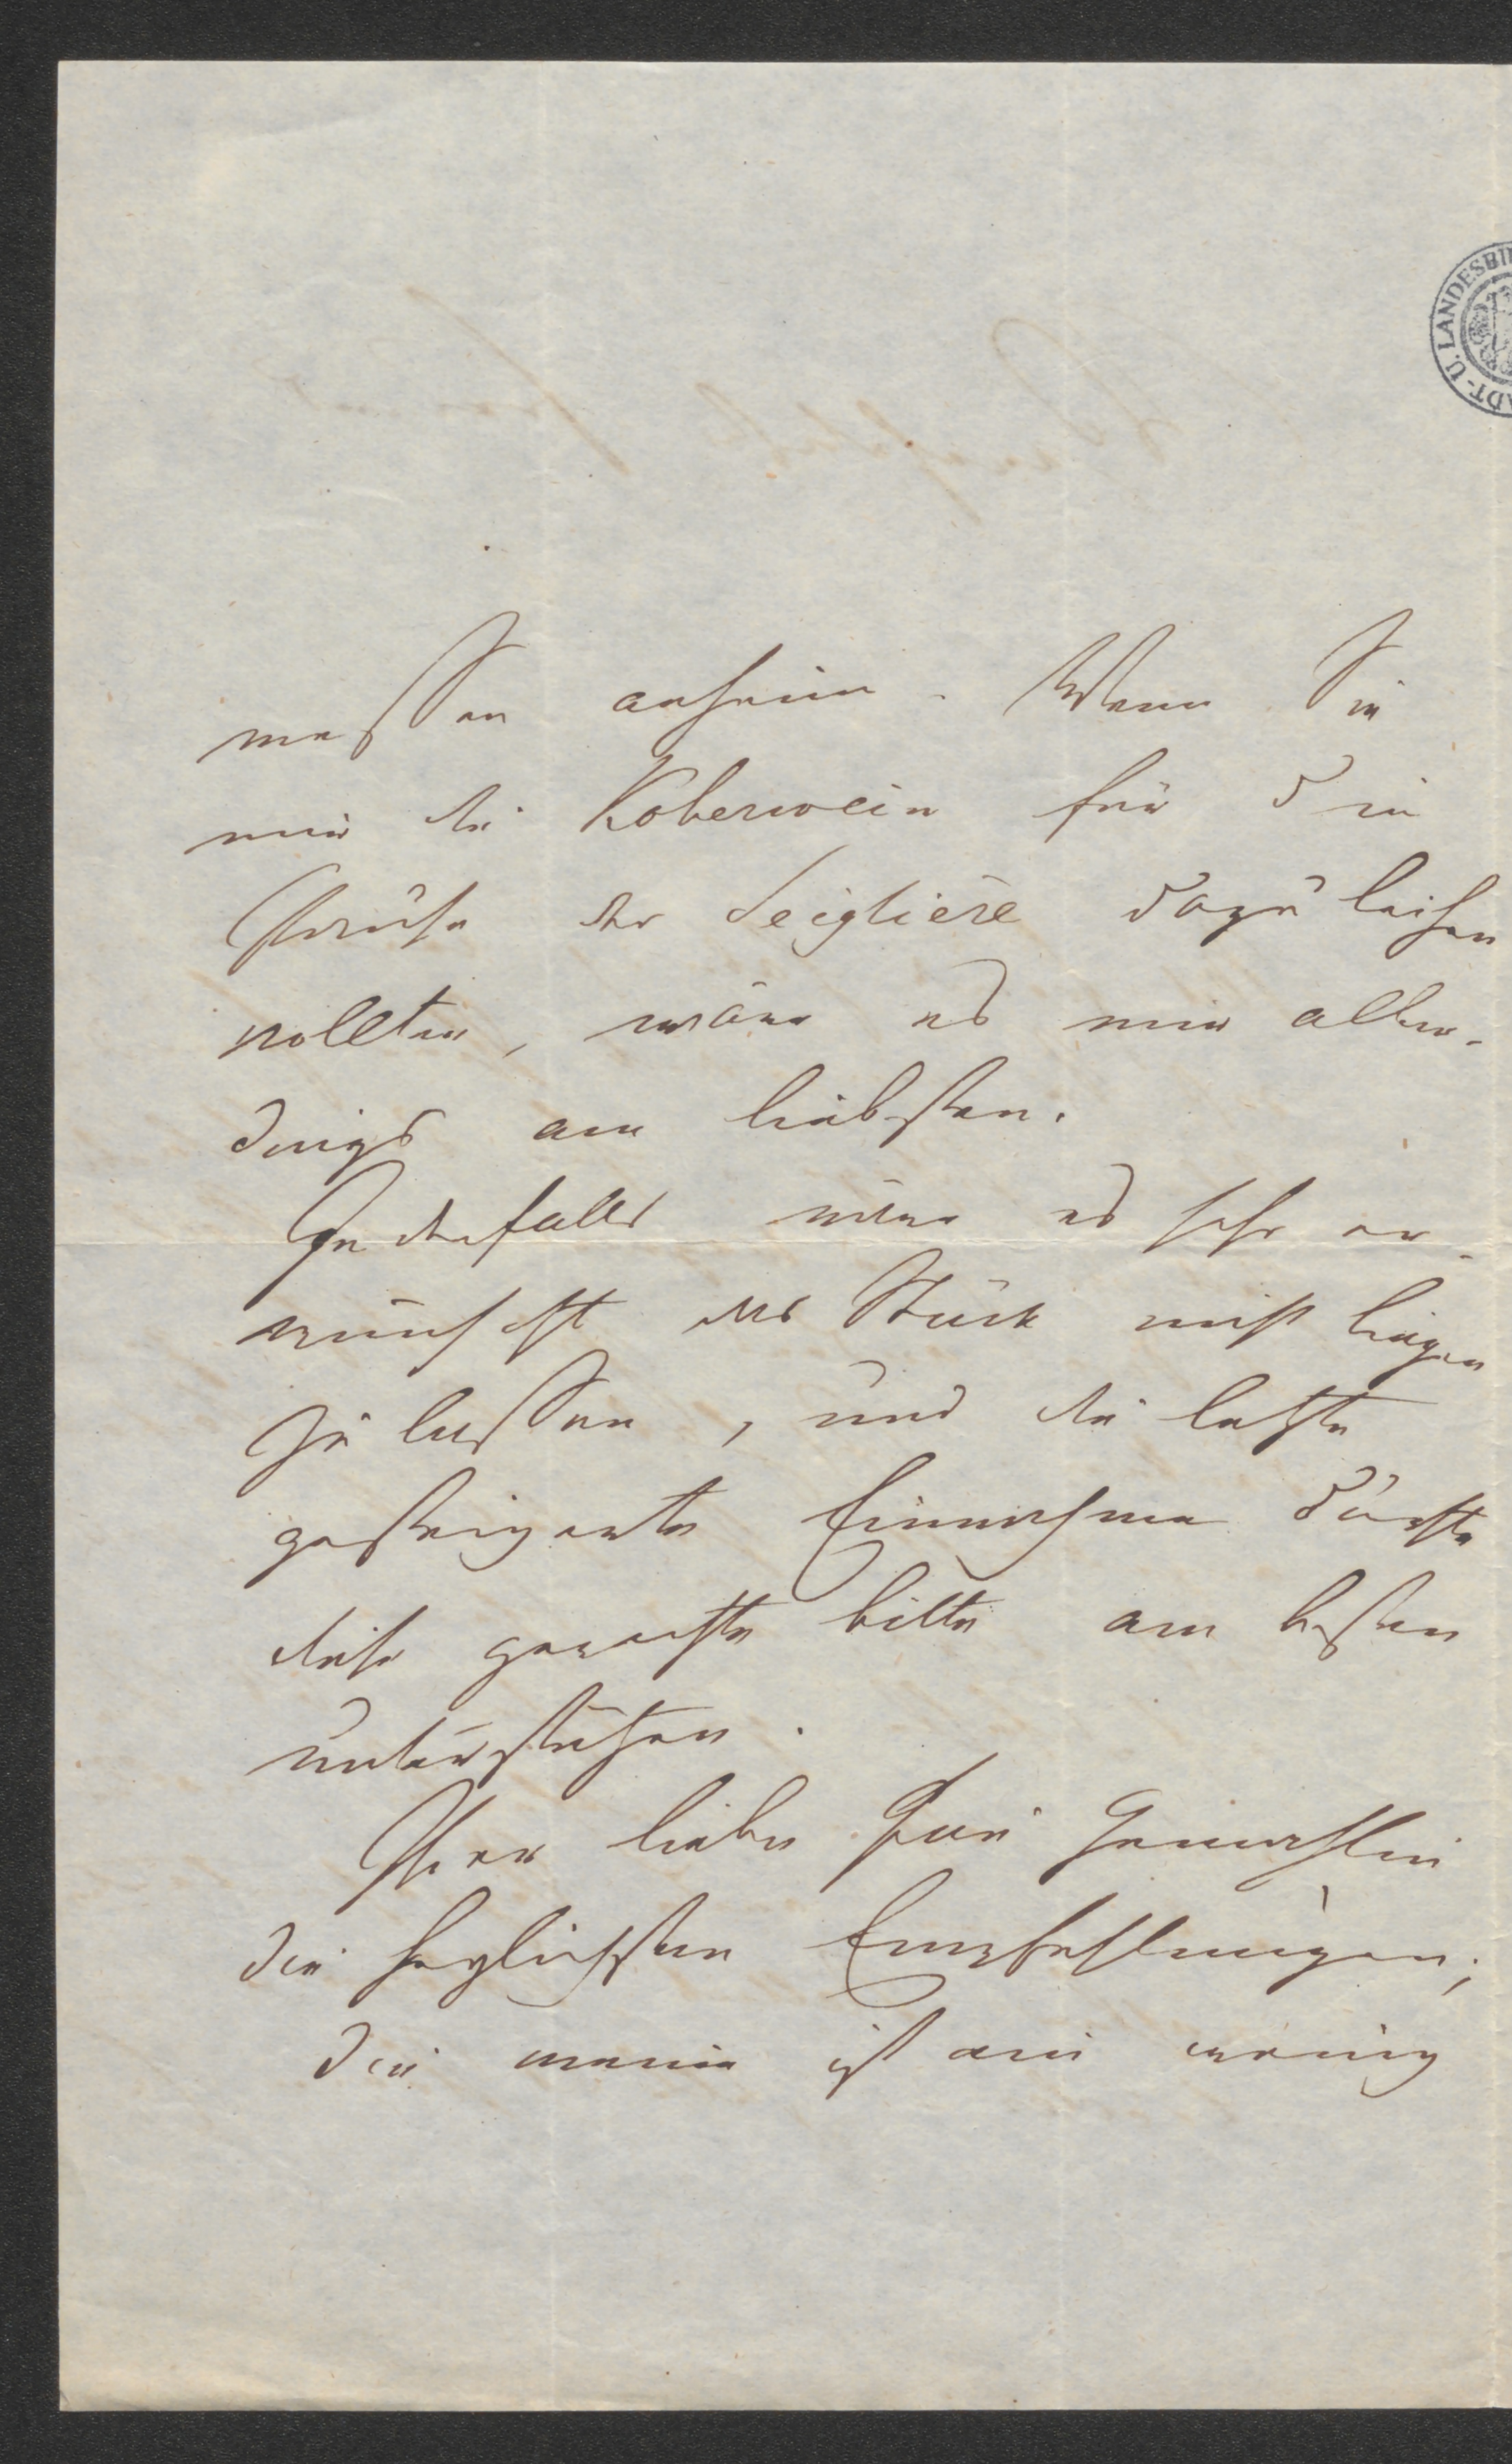 messen anheim. Wenn Sie
mir die Koberwein für die
der Seiglière dazu leihen
wollten, wäre es mir aller-
dings am liebsten.
Jedesfalls wäre es sehr er-
wünscht das Stück nicht liegen
zu lassen, und die letzte
gesteigerte Einnahme dürfte
diese gerechte bitte am besten
unterstützen.
Ihrer lieben Frau Gemahlin
die herzlichsten Empfehlungen;
die meine ist ein wenig
ADT- U. LANDESBI